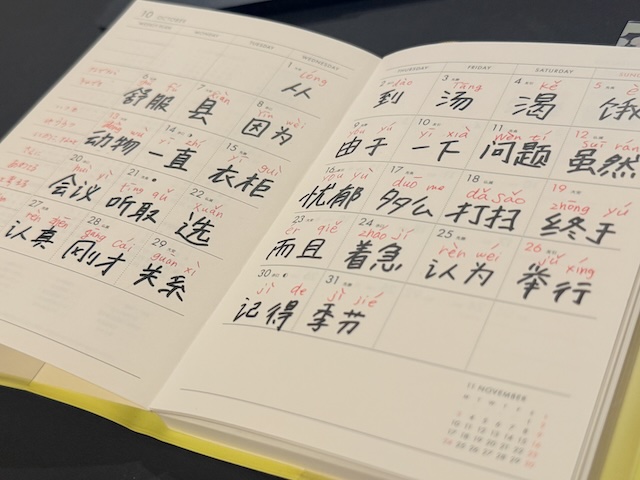 10 OCTOBER
WEDNESDAY
THURSDAY FRIDAY SATURDAY
1 cóng
从
2 dào 3 tāng 4 kě 5 è
到 汤 渴 饿
6 fu 7 xiàn 8 yīn wèi
舒服 县 因为
9 yóu yú 10 yí xià 11 wèn tí 12 suī rán
由于 一下 问题 虽然
13 dòng wù 14 yì zhí 15 yī guì
动物 一直 衣柜
16 yōu yù 17 duō me 18 dǎ sǎo 19 zhōng yú
忧郁 多么 打扫 终于
20 huì yì 21 tīng qǔ 22 xuǎn
会议 听取 选
23 ér qiě 24 zháo jí 25 rèn wéi 26 jǔ xíng
而且 着急 认为 举行
27 rèn zhēn 28 gāng cái 29 guān xì
认真 刚才 关系
30 jì de 31 jì jié
记得 季节
11 NOVEMBER